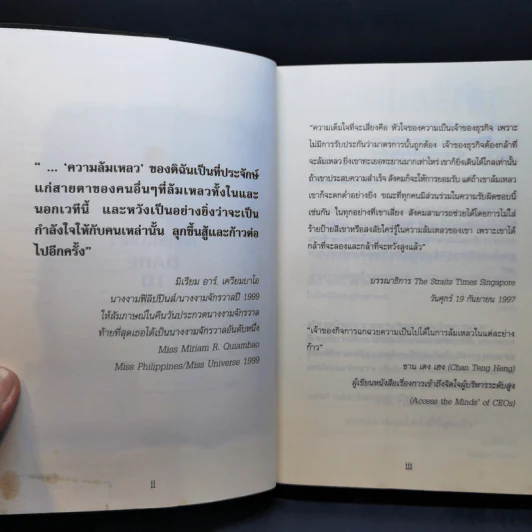 “ ... ‘ความล้มเหลว’ ของดิฉันเป็นที่ประจักษ์
แก่สายตาของคนอื่นๆที่ล้มเหลวทั้งในและ
นอกเวทีนี้ และหวังเป็นอย่างยิ่งว่าจะเป็น
กำลังใจให้กับคนเหล่านั้น ลุกขึ้นสู้และก้าวต่อ
ไปอีกครั้ง”
มิเรียม อาร์. เควียมบาโอ
นางงามฟิลิปปินส์/นางงามจักรวาลปี 1999
ให้สัมภาษณ์ในคืนวันประกวดนางงามจักรวาล
ท้ายที่สุดเธอได้เป็นนางงามจักรวาลอันดับหนึ่ง
Miss Miriam R. Quiambao
Miss Philippines/Miss Universe 1999
ii
“ความเต็มใจที่จะเสี่ยงคือ หัวใจของความเป็นเจ้าของธุรกิจ เพราะ
ไม่มีการรับประกันว่ามาตรการนั้นถูกต้อง เจ้าของธุรกิจต้องกล้าที่
จะล้มเหลว ยิ่งเขาทะเยอทะยานมากเท่าไหร่ เขาก็ยิ่งเดินได้ไกลเท่านั้น
ถ้าเขาประสบความสำเร็จ สังคมก็จะให้การยอมรับ แต่ถ้าเขาล้มเหลว
เขาก็จะตกต่ำอย่างยิ่ง ขณะที่ทุกคนมีส่วนร่วมในความรับผิดชอบนี้
เช่นกัน ในทุกอย่างที่เขาเสี่ยง สังคมสามารถช่วยได้โดยการไม่ใส่
ร้ายป้ายสีเขาหรือสงสัยใคร่รู้ในความล้มเหลวของเขา เพราะเขาได้
กล้าที่จะลองและกล้าที่จะหวังสูงแล้ว”
บรรณาธิการ The Straits Times Singapore
วันศุกร์ 19 กันยายน 1997
“เจ้าของกิจการแฉกฉวยความเป็นไปได้ในการล้มเหลวในแต่ละย่าง
ก้าว”
ชาน เตง เฮง (Chan Teng Heng)
ผู้เขียนหนังสือเรื่องการเข้าถึงจิตใจผู้บริหารระดับสูง
(Access the Minds’ of CEOs)
iii